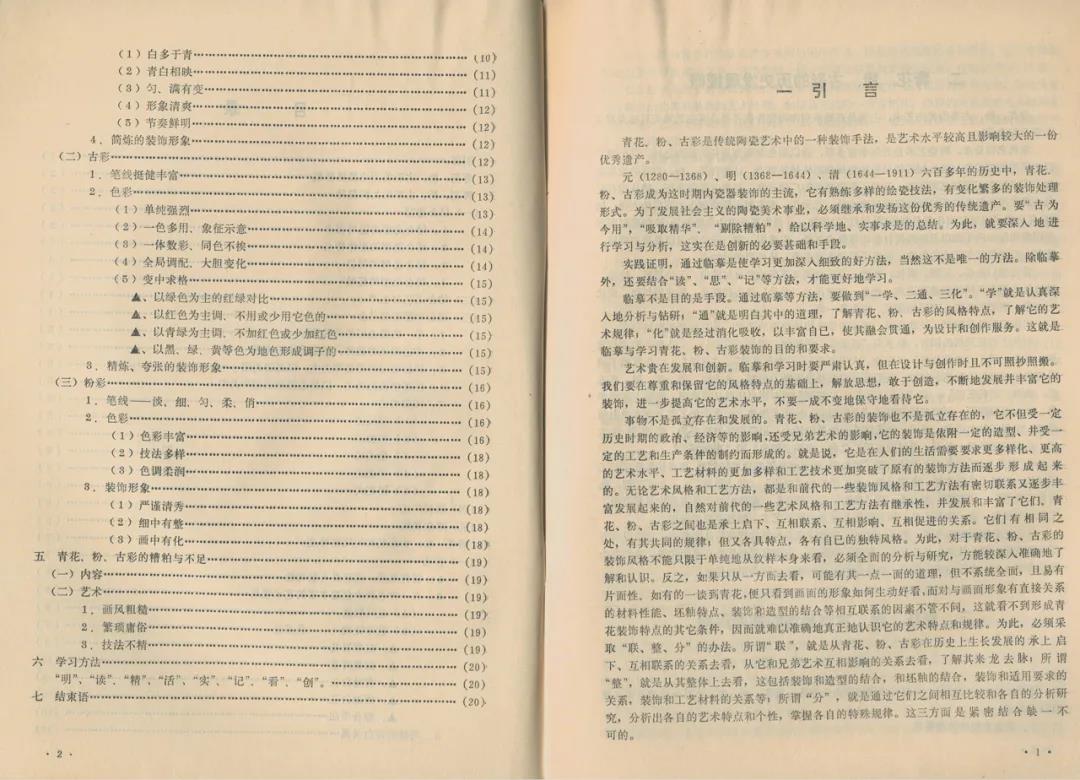 (1)白多于青……(10)
(2)青白相映……(11)
(3)匀、满有变……(11)
(4)形象清爽……(12)
(5)节奏鲜明……(12)
4．简炼的装饰形象……(12)
(二)古彩……(12)
1．笔线挺健丰富……(13)
2．色彩……(13)
(1)单纯强烈……(13)
(2)一色多用、象征示意……(14)
(3)一体数彩、同色不挨……(14)
(4)全局调配、大胆变化……(14)
(5)变中求格……(15)
▲、以绿色为主的红绿对比……(15)
▲、以红色为主调、不用或少用它色的……(15)
▲、以青绿为主调、不加红色或少加红色……(15)
▲、以黑、绿、黄等色为地色形成调子的……(15)
3．精炼、夸张的装饰形象……(15)
(三)粉彩……(16)
1．笔线——淡、细、匀、柔、俏……(16)
2．色彩……(16)
(1)色彩丰富……(16)
(2)技法多样……(18)
(3)色调柔润……(18)
3．装饰形象……(18)
(1)严谨清秀……(18)
(2)细中有整……(18)
(3)画中有化……(18)
五 青花、粉、古彩的糟粕与不足……(19)
(一)内容……(19)
(二)艺术……(19)
1．画风粗糙……(19)
2．繁琐庸俗……(19)
3．技法不精……(19)
六 学习方法……(20)
“明”、“读”、“精”、“活”、“实”、“记”、“看”、“创”。……(20)
七 结束语……(20)
· 2 ·
一 引 言
青花、粉、古彩是传统陶瓷艺术中的一种装饰手法，是艺术水平较高且影响较大的一份
优秀遗产。
元（1280—1368）、明（1368—1644）、清（1644—1911）六百多年的历史中，青花、
粉、古彩成为这时期内瓷器装饰的主流，它有熟练多样的绘瓷技法，有变化繁多的装饰处理
形式。为了发展社会主义的陶瓷美术事业，必须继承和发扬这份优秀的传统遗产。要“古为
今用”，“吸取精华”、“剔除糟粕”，给以科学地、实事求是的总结。为此，就要深入地进
行学习与分析，这实在是创新的必要基础和手段。
实践证明，通过临摹是使学习更加深入细致的好方法，当然这不是唯一的方法。除临摹
外，还要结合“读”、“思”、“记”等方法，才能更好地学习。
临摹不是目的是手段。通过临摹等方法，要做到“一学、二通、三化”。“学”就是认真深
入地分析与钻研；“通”就是明白其中的道理，了解青花、粉、古彩的风格特点，了解它的艺
术规律；“化”就是经过消化吸收，以丰富自已，使其融会贯通，为设计和创作服务。这就是
临摹与学习青花、粉、古彩装饰的目的和要求。
艺术贵在发展和创新。临摹和学习时要严肃认真，但在设计与创作时且不可照抄照搬。
我们要在尊重和保留它的风格特点的基础上，解放思想，敢于创造，不断地发展并丰富它的
装饰，进一步提高它的艺术水平，不要一成不变地保守地看待它。
事物不是孤立存在和发展的。青花、粉、古彩的装饰也不是孤立存在的，它不但受一定
历史时期的政治、经济等的影响，还受兄弟艺术的影响，它的装饰是依附一定的造型、并受一
定的工艺和生产条件的制约而形成的。就是说，它是在人们的生活需要要求更多样化、更高
的艺术水平、工艺材料的更加多样和工艺技术更加突破了原有的装饰方法而逐步形成起来
的。无论艺术风格和工艺方法，都是和前代的一些装饰风格和工艺方法有密切联系又逐步丰
富发展起来的，自然对前代的一些艺术风格和工艺方法有继承性，并发展和丰富了它们。青
花、粉、古彩之间也是承上启下、互相联系、互相影响、互相促进的关系。它们有相同之
处，有其共同的规律；但又各具特点，各有自已的独特风格。为此，对于青花、粉、古彩的
装饰风格不能只限于单纯地从纹样本身来看，必须全面的分析与研究，方能较深入准确地了
解和认识。反之，如果只从一方面去看，可能有其一点一面的道理，但不系统全面，且易有
片面性。如有的一谈到青花，便只看到画面的形象如何生动好看，而对与画面形象有直接关系
的材料性能、坯釉特点、装饰和造型的结合等相互联系的因素不管不问，这就看不到形成青
花装饰特点的其它条件，因而就难以准确地真正地认识它的艺术特点和规律。为此，必须采
取“联、整、分”的办法。所谓“联”，就是从青花、粉、古彩在历史上生长发展的承上启
下、互相联系的关系去看，从它和兄弟艺术互相影响的关系去看，了解其来龙去脉；所谓
“整”，就是从其整体上去看，这包括装饰和造型的结合，和坯釉的结合，装饰和适用要求的
关系，装饰和工艺材料的关系等；所谓“分”，就是通过它们之间相互比较和各自的分析研
究，分析出各自的艺术特点和个性，掌握各自的特殊规律。这三方面是紧密结合缺一不
可的。
· 1 ·